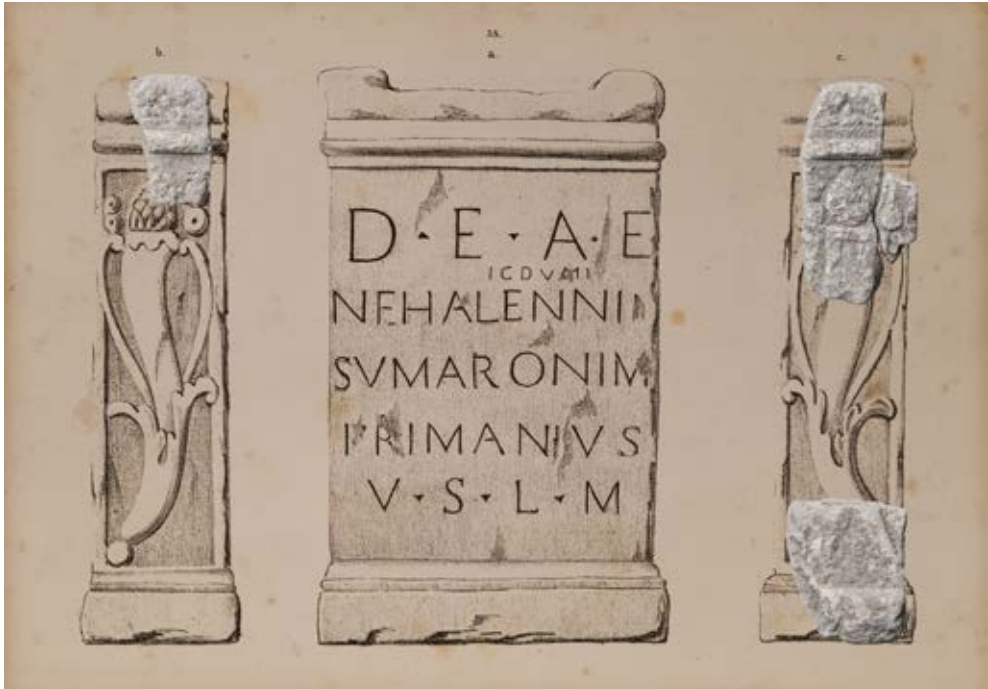 23.
b. a. c.
D · E · A · E
ICDVMI
NEHALENNI
SVMARONIM
PRIMANIVS
V · S · L · M